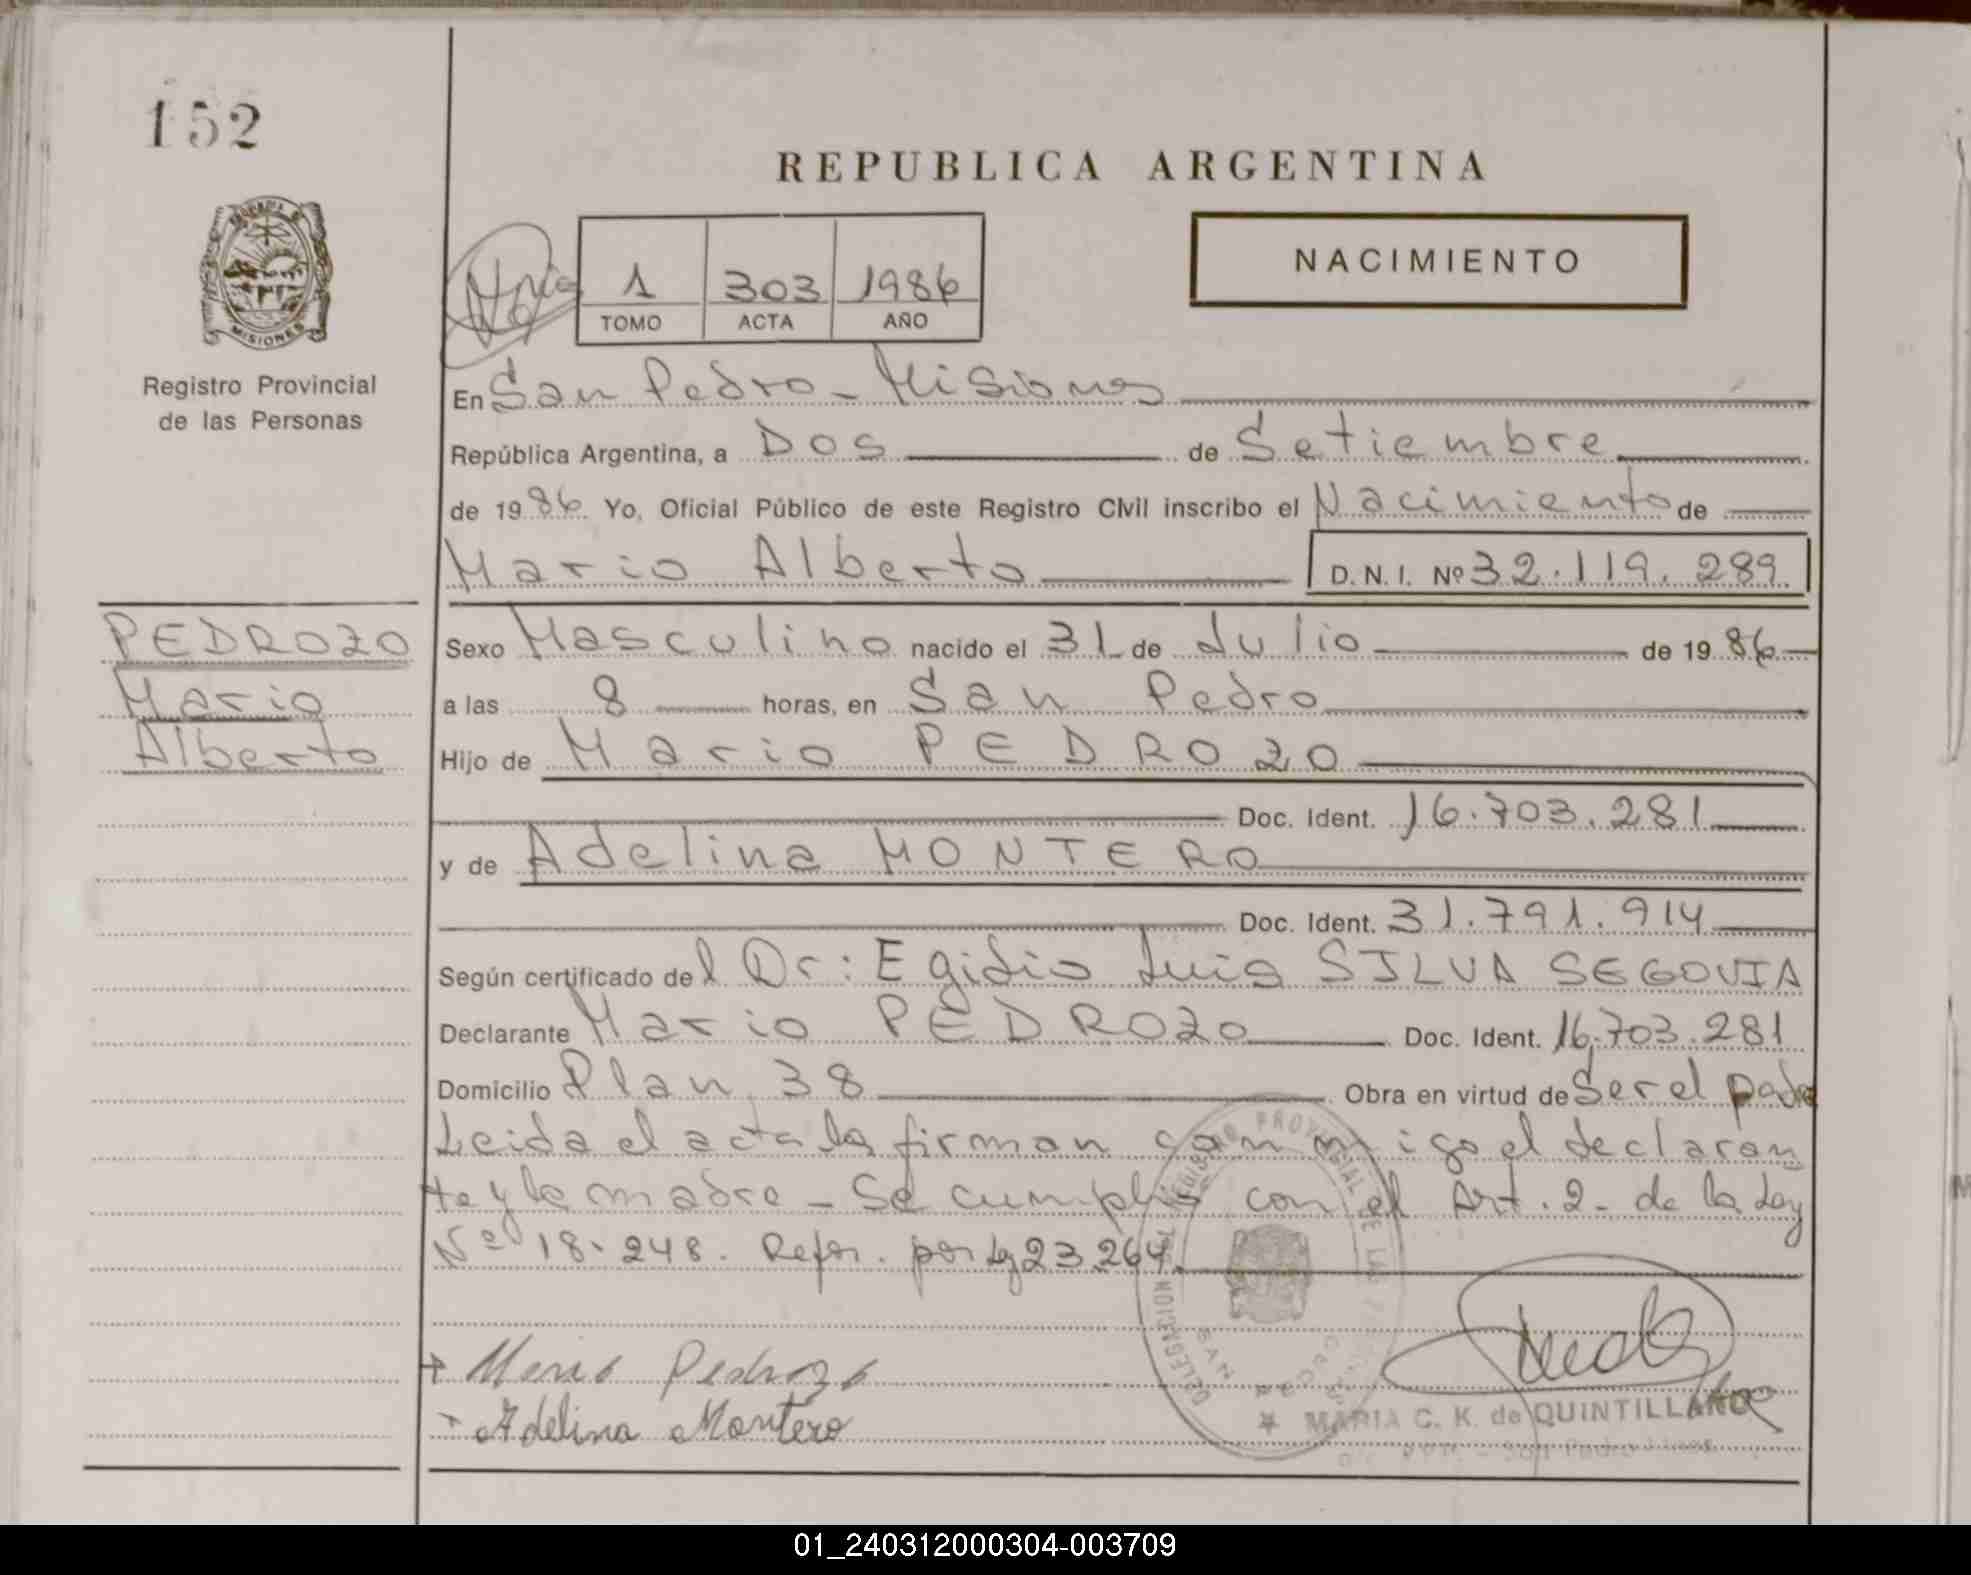 152
REPUBLICA ARGENTINA
NACIMIENTO
1 303 1986
TOMO ACTA AÑO
MISIONES
Registro Provincial
de las Personas
En San Pedro - Misiones
República Argentina, a Dos de Setiembre
de 1986 Yo, Oficial Público de este Registro Civil inscribo el Nacimiento de
Mario Alberto D.N.I. Nº 32.119.289
PEDROZO
Mario
Alberto
Sexo Masculino nacido el 31 de Julio de 1986
a las 8 horas, en San Pedro
Hijo de Mario PEDROZO
Doc. Ident. 16.703.281
y de Adelina MONTERO
Doc. Ident. 31.791.914
Según certificado del Dr: Egidio Luis SILVA SEGOVIA
Declarante Mario PEDROZO Doc. Ident. 16.703.281
Domicilio Plan 38 Obra en virtud de Ser el padre
Leida el acta la firman conmigo el declaran
te y la madre - Se cumplió con el Art. 2- de la Ley
Nº 18.248. Refor. por Ley 23.264.
Mario Pedrozo
Adelina Montero
DELEGACION DEL REGISTRO PROVINCIAL DE LAS
SAN PEDRO
MARIA C. K. de QUINTILLANO
San Pedro
01_240312000304-003709